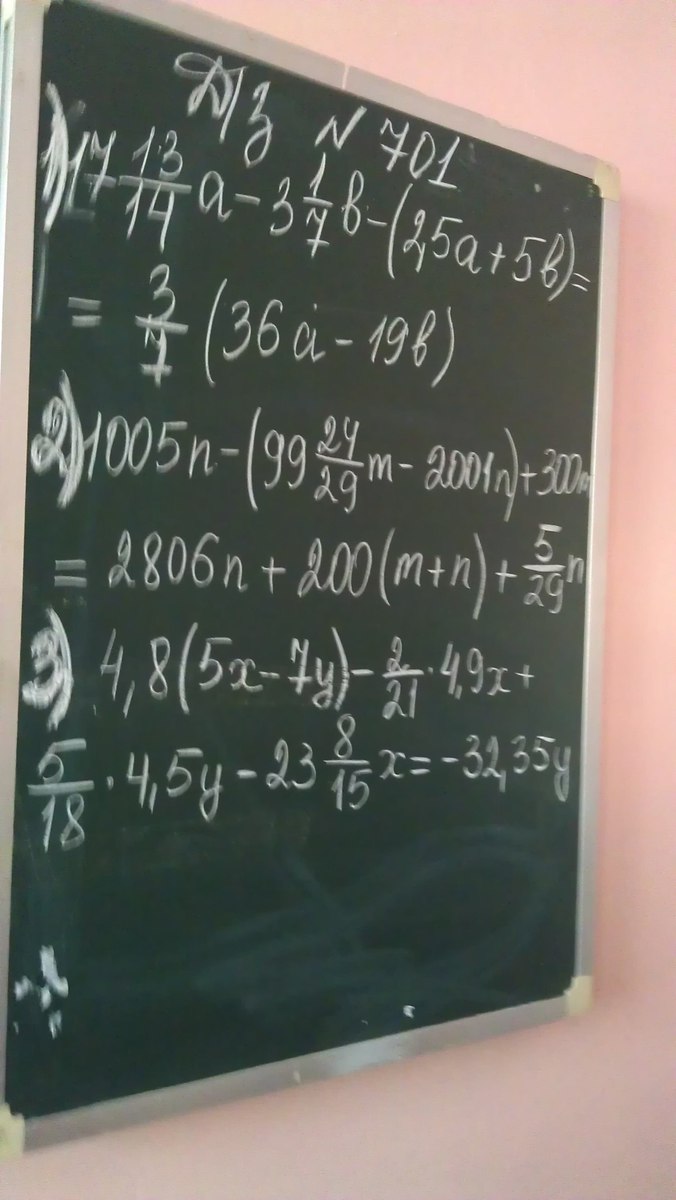 Д/З № 701
1) 17 13/14 a - 3 1/7 b - (2,5a + 5b) =
= 3/7 (36a - 19b)
2) 1005n - (99 24/29 m - 2001n) + 300m
= 2806n + 200(m+n) + 5/29 n
3) 4,8(5x - 7y) - 2/21 · 4,9x +
5/18 · 4,5y - 23 8/15 x = -32,35y